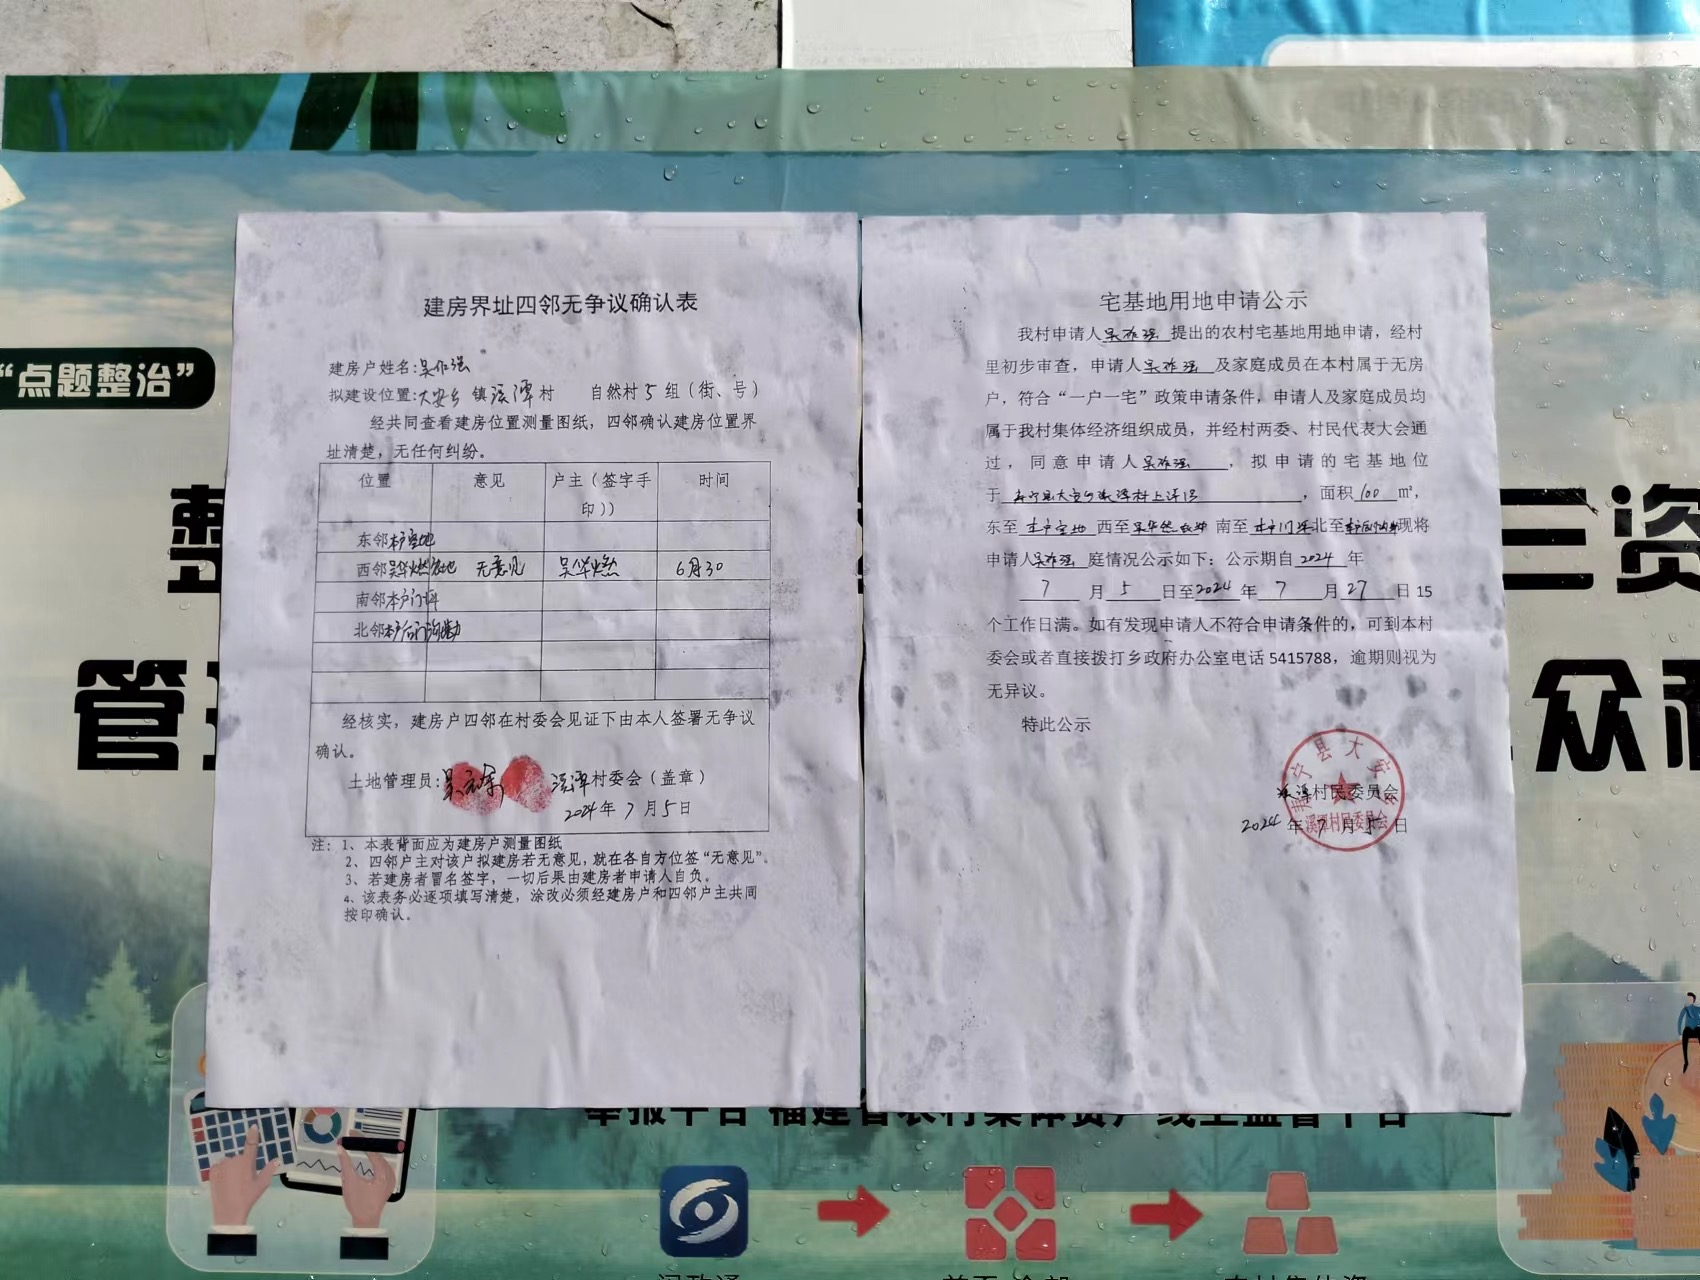 “点题整治”
整
三资
管
众
建房界址四邻无争议确认表
建房户姓名:吴作强
拟建设位置:大安乡 镇溪潭村 自然村5组(街、号)
经共同查看建房位置测量图纸,四邻确认建房位置界
址清楚,无任何纠纷。
位置 意见 户主(签字手印)) 时间
东邻本户空地
西邻吴华燃农地 无意见 吴华燃 6月30
南邻本户门坪
北邻本户后门沟
经核实,建房户四邻在村委会见证下由本人签署无争议
确认。
土地管理员: 溪潭村委会(盖章)
2024年7月5日
注:1、本表背面应为建房户测量图纸
2、四邻户主对该户拟建房若无意见,就在各自方位签“无意见”。
3、若建房者冒名签字,一切后果由建房者申请人自负。
4、该表务必逐项填写清楚,涂改必须经建房户和四邻户主共同
按印确认。
宅基地用地申请公示
我村申请人吴祚强提出的农村宅基地用地申请,经村
里初步审查,申请人吴祚强 及家庭成员在本村属于无房
户,符合“一户一宅”政策申请条件,申请人及家庭成员均
属于我村集体经济组织成员,并经村两委、村民代表大会通
过,同意申请人吴祚强,拟申请的宅基地位
于寿宁县大安乡溪潭村上洋,面积100㎡,
东至本户空地 西至吴华燃农地 南至本户门坪北至本户后门沟现将
申请人吴祚强 庭情况公示如下:公示期自2024年
7月5日至2024年7月27日15
个工作日满。如有发现申请人不符合申请条件的,可到本村
委会或者直接拨打乡政府办公室电话5415788,逾期则视为
无异议。
特此公示
溪潭村民委员会
2024年7月5日
寿宁县大安乡
溪潭村民委员会
举报平台 福建省农村集体资产线上监管平台